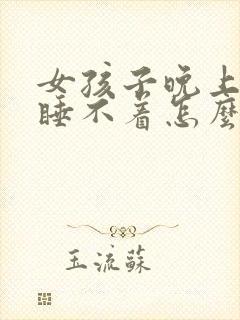 女孩子晚上
睡不着怎麼
玉流蘇